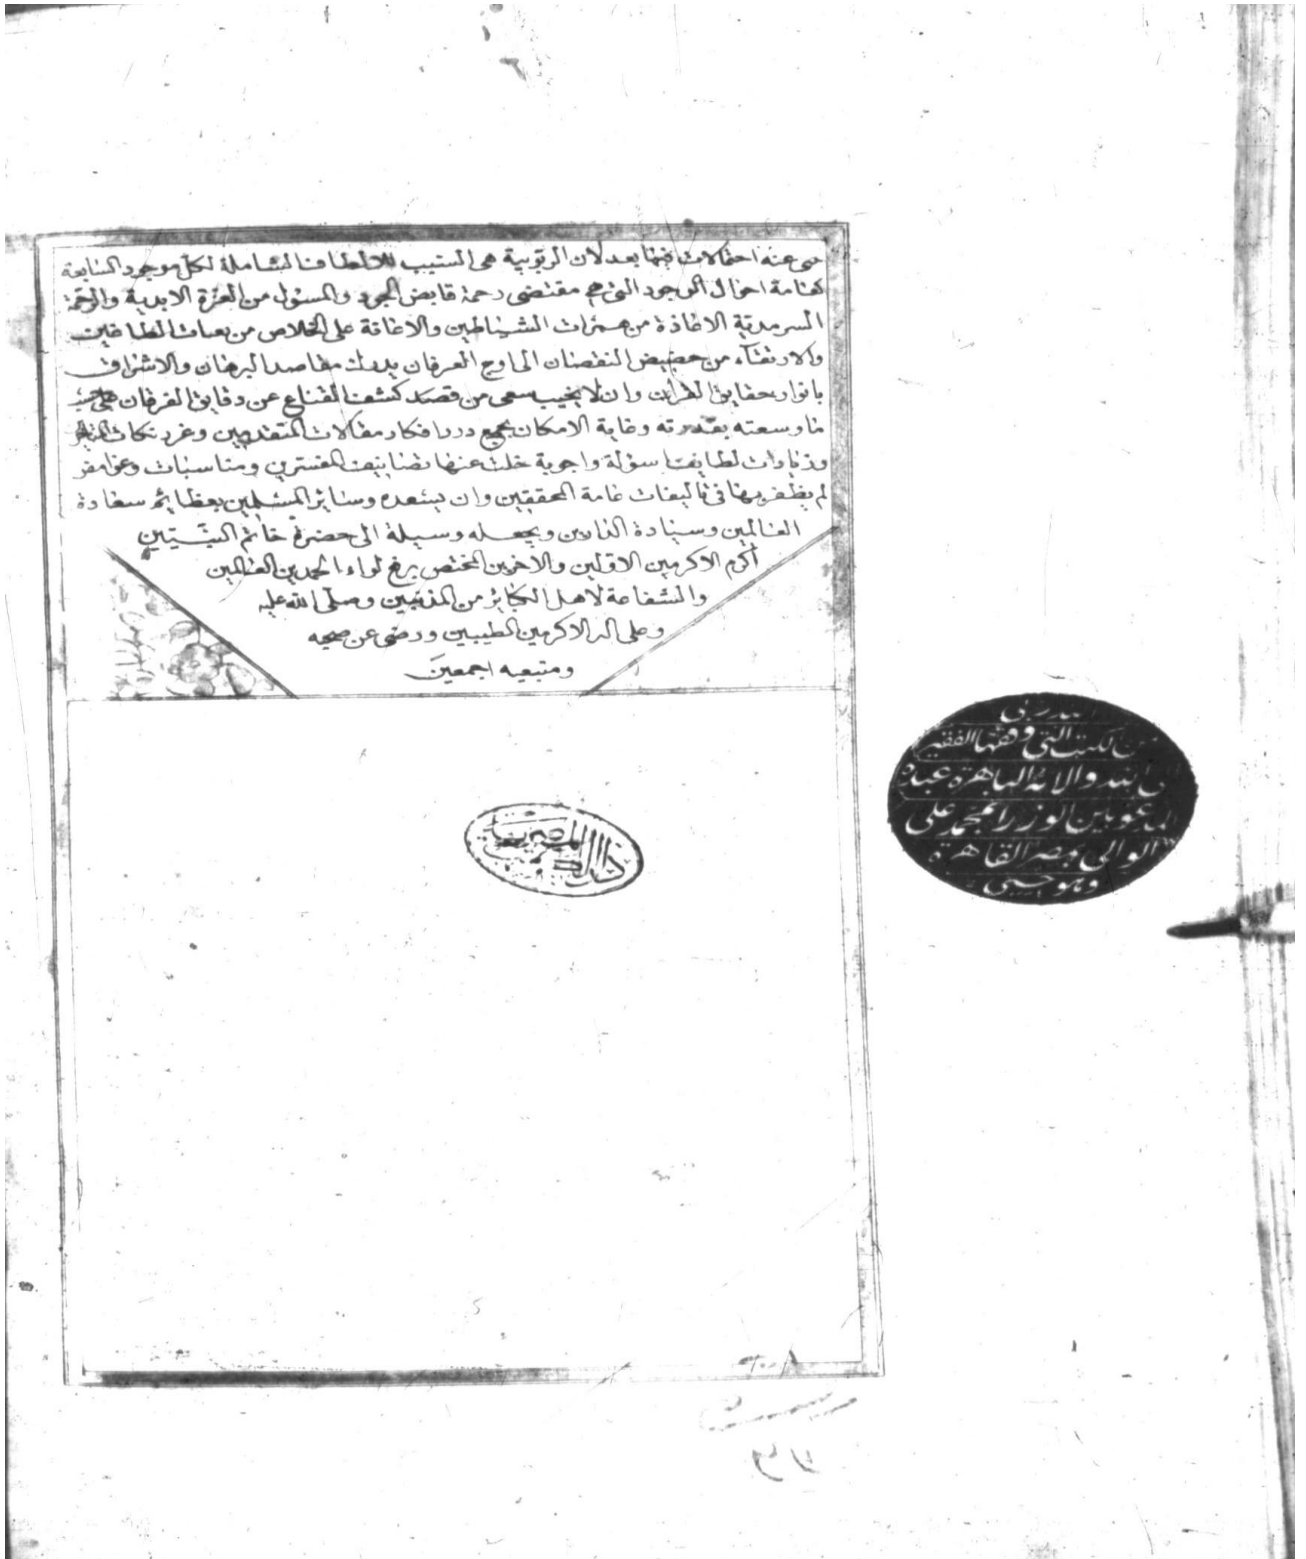 عنه احتمالات فيما بعد لأن الربوبية هى السبب للالطاف الشاملة لكل موجود السابغة
لعامة احوال الوجود التى هى مقتضى رحمة فايض الجود والمسئول من العزة الابدية والرحمة
السرمدية الاعاذة من همزات الشياطين والاعانة على الخلاص من الطاغين
والارتقاء من حضيض النقصان الى اوج العرفان بدرك مقاصد البرهان والاشراف
بانوار حقايق القرأن وان لا يخيب سعى من قصد كشف القناع عن دقايق الفرقان على حسب
ما وسعته بقدرته وغاية الامكان بجمع درر افكار مقالات المتقدمين وغرر نكات
وزيادات لطايف اسولة واجوبة خلت عنها تصانيف المفسرين ومناسبات وغوامض
لم يظفر بها فى تاليفات عامة المحققين وان يسعده وساير المسلمين بعظايم سعادة
العالمين وسيادة الدارين ويجعله وسيلة الى حضرة خاتم النبيين
أكرم الاكرمين الاولين والاخرين المختص برفع لواء الحمد بين العالمين
والشفاعة لاهل الكبائر من المذنبين وصلى الله عليه
وعلى اله الاكرمين الطيبين ورضى عن صحبه
ومتبعيه اجمعين
من الكتب التى وقفها الفقير
الى الله والائه الباهرة عبده
بين الوزرا محمد على
الوالى بمصر القاهرة
وهو حسبى